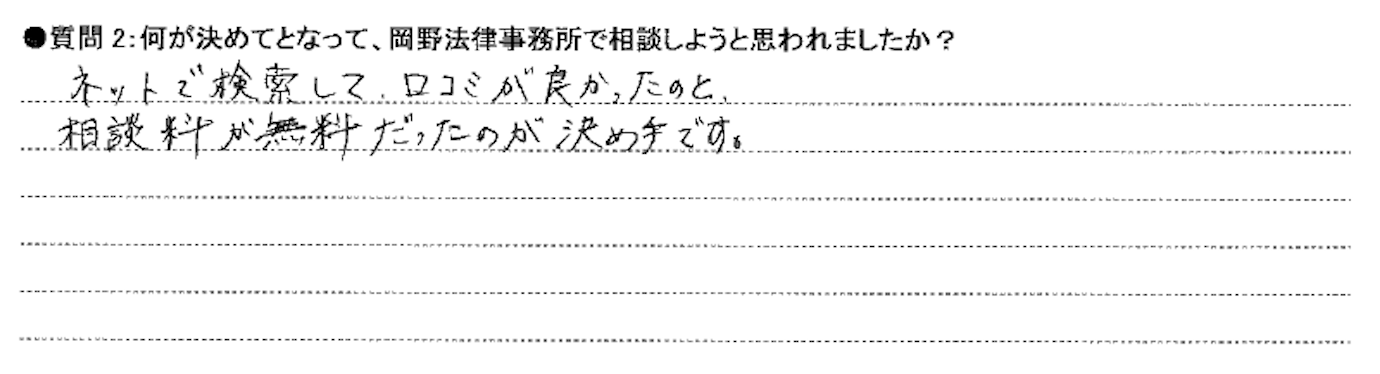 ●質問2:何が決めてとなって、岡野法律事務所で相談しようと思われましたか？
ネットで検索して、口コミが良かったのと、
相談料が無料だったのが決め手です。